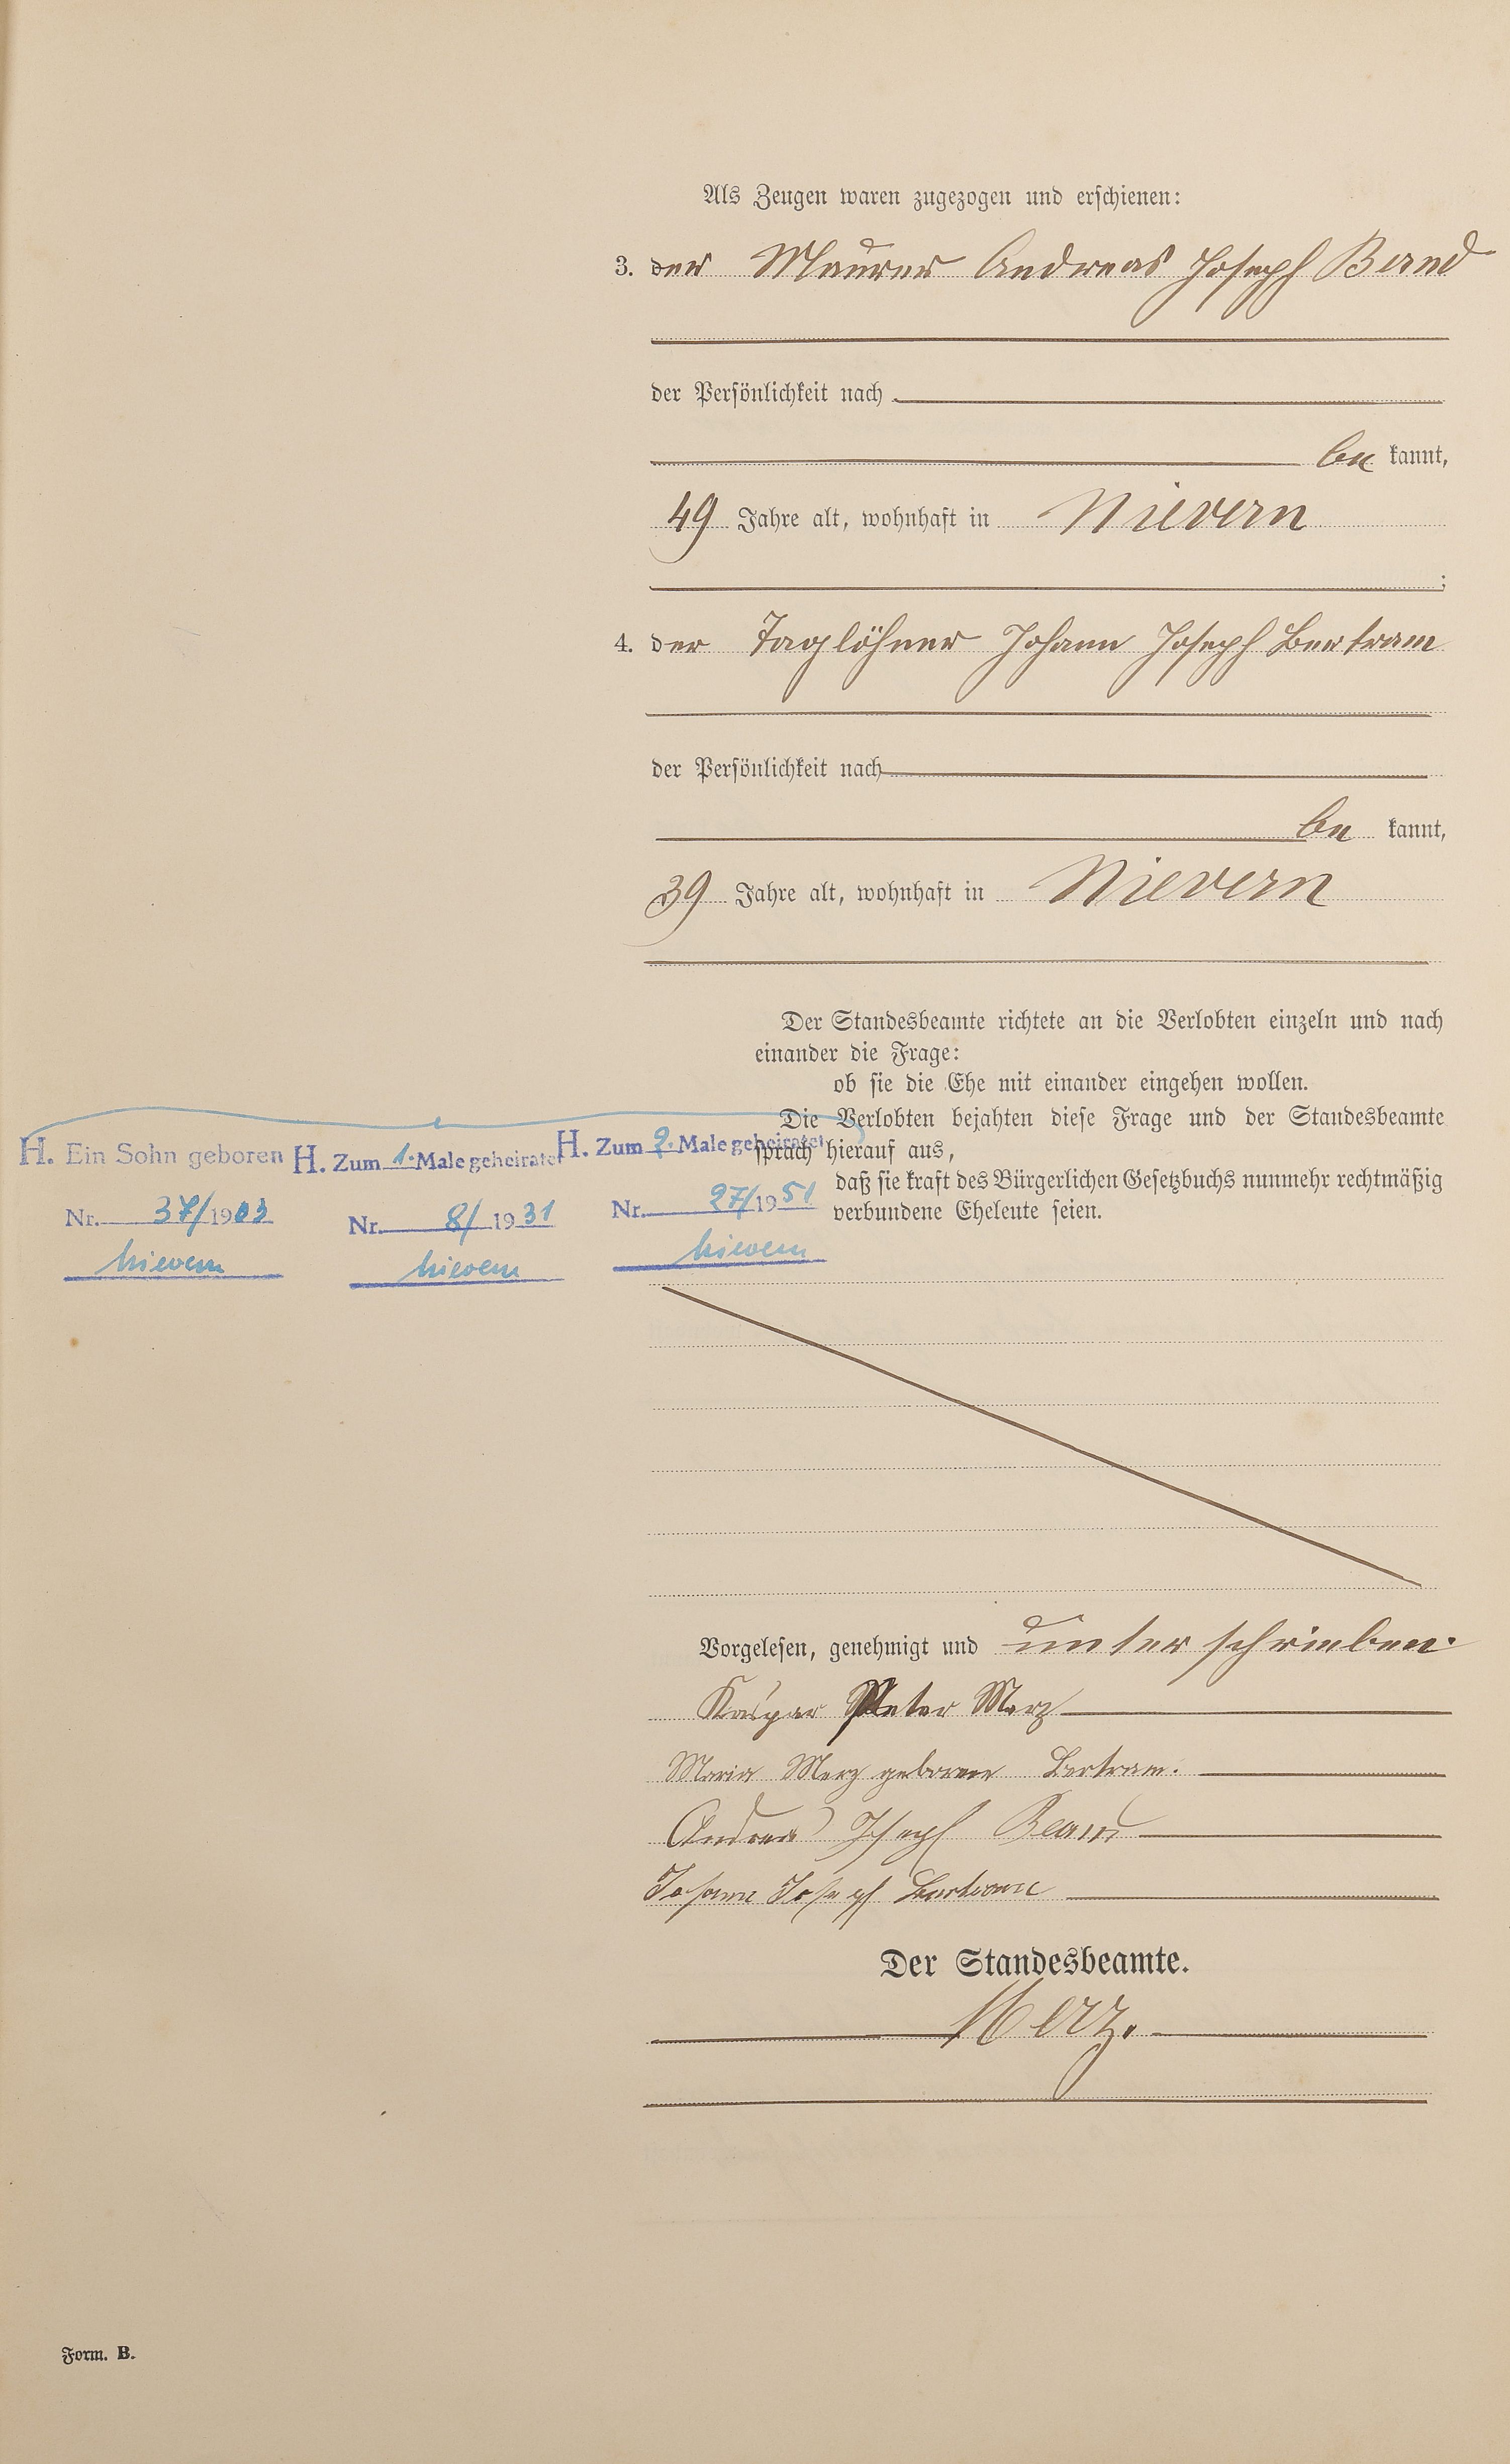 Als Zeugen waren zugezogen und erschienen:
3. der Maurer Andreas Joseph Bernd
der Persönlichkeit nach
be kannt,
49 Jahre alt, wohnhaft in Nievern
;
4. der Taglöhner Johann Joseph Bertram
der Persönlichkeit nach
be kannt,
39 Jahre alt, wohnhaft in Nievern
Der Standesbeamte richtete an die Verlobten einzeln und nach
einander die Frage:
ob sie die Ehe mit einander eingehen wollen.
Die Verlobten bejahten diese Frage und der Standesbeamte
sprach hierauf aus,
daß sie kraft des Bürgerlichen Gesetzbuchs nunmehr rechtmäßig
verbundene Eheleute seien.
H. Ein Sohn geboren
Nr. 37/1903
Nievern
H. Zum 1. Male geheiratet
Nr. 8/1931
Nievern
H. Zum 2. Male geheiratet
Nr. 27/1951
Nievern
Vorgelesen, genehmigt und unterschrieben.
Kaspar Peter Merz
Maria Merz geborene Bertram.
Andreas Joseph Bernd
Johann Joseph Bertram
Der Standesbeamte.
Merz.
Form. B.